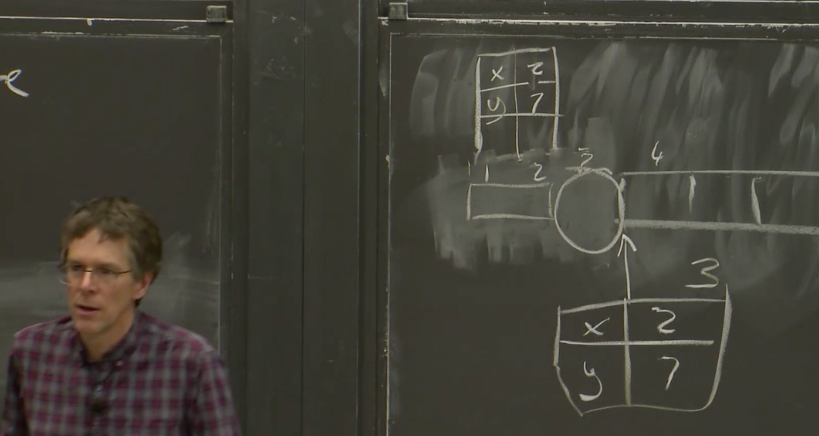 x 2
y 7
1 2 3 4
3
x 2
y 7